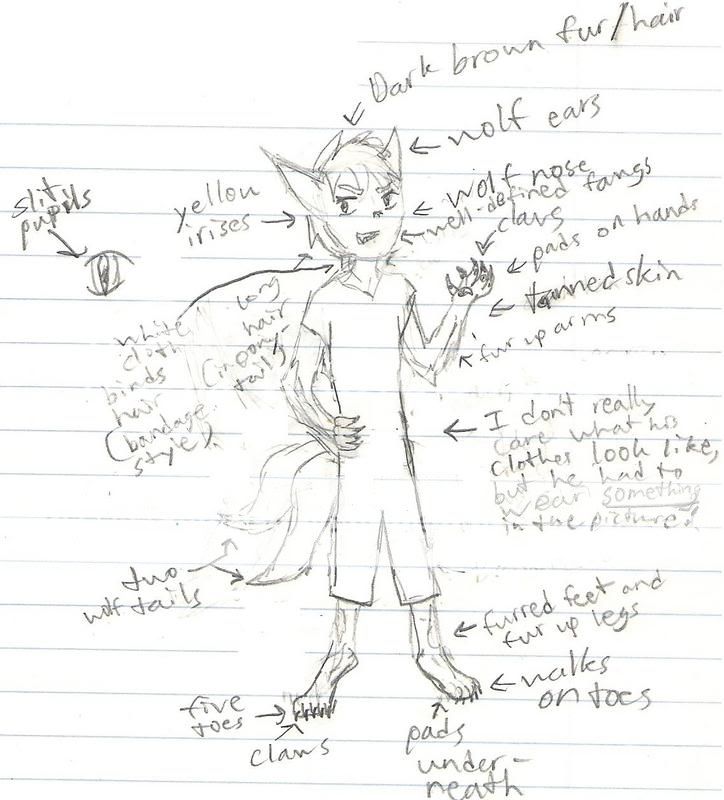 Dark brown fur/hair
wolf ears
slit
pupils
yellow
irises
wolf nose
well-defined fangs
claws
pads on hands
tanned skin
fur up arms
white
cloth
binds
hair
(bandage
style)
long
hair
(in pony-
tail)
I don't really
care what his
clothes look like,
but he had to
wear something
in the picture!
two
wolf tails
furred feet and
fur up legs
walks
on toes
five
toes
claws
pads
under-
neath